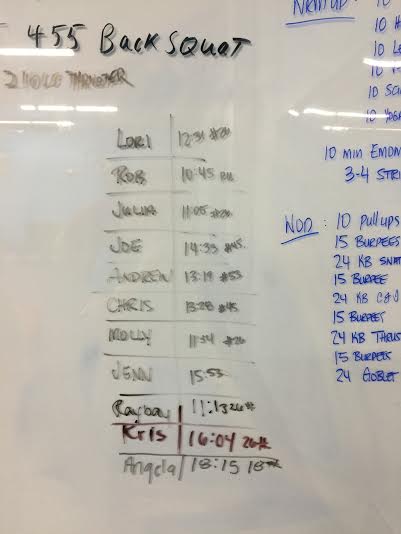 455 BACK SQUAT
LORI 12:31 #26
ROB 10:45 RX
JULIE 11:05 #26
JOE 14:33 #45
ANDREW 13:19 #53
CHRIS 13:28 #45
MOLLY 11:34 #26
JENN 15:53
Rayban 11:13 26#
KRIS 16:04 26#
Angela 18:15 18#
WARM UP:
10
10
10
10
10
10
10 min EMOM
3-4 STRI
WOD: 10 Pull ups
15 BURPEES
24 KB SNAT
15 BURPEE
24 KB C&J
15 BURPEES
24 KB THRUS
15 BURPEES
24 GOBLET